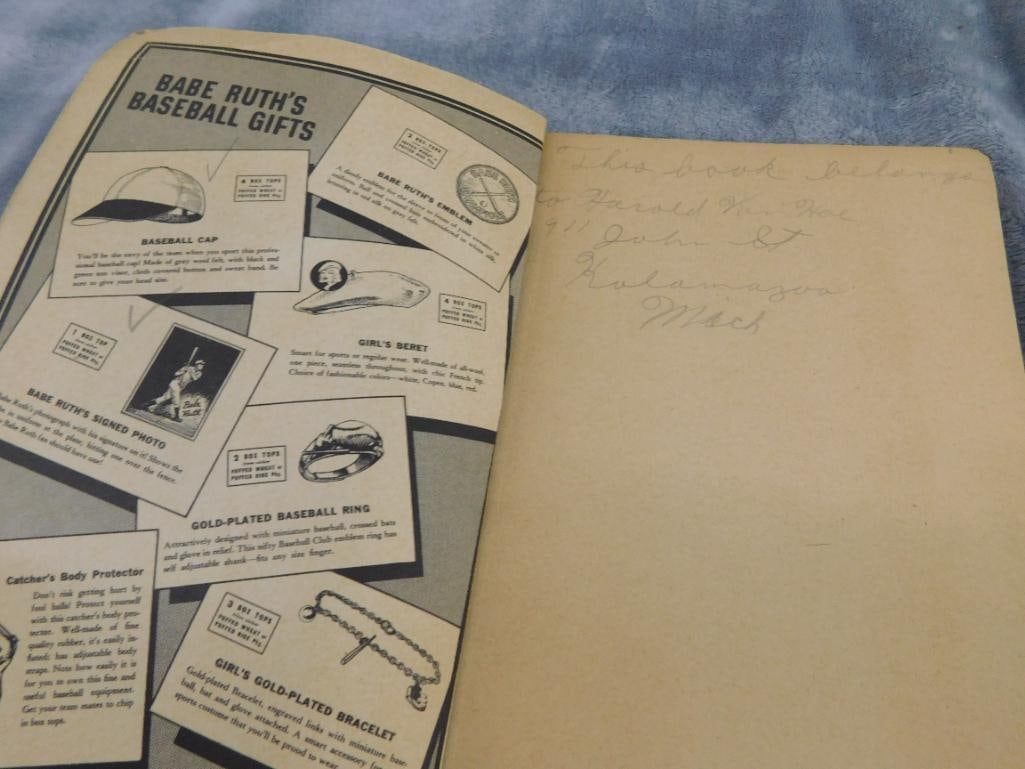 BABE RUTH'S
BASEBALL GIFTS
2 BOX TOPS
from either
PUFFED WHEAT or
PUFFED RICE Pkg.
BABE RUTH'S EMBLEM
A dandy emblem for the sleeve or front of your sweater or
uniform. Ball and crossed bats embroidered in white silk,
lettering in red silk on grey felt.
4 BOX TOPS
from either
PUFFED WHEAT or
PUFFED RICE Pkg.
BASEBALL CAP
You'll be the envy of the team when you sport this profes-
sional baseball cap! Made of grey wool felt, with black and
green ton visor, cloth covered button and sweat band. Be
sure to give your head size.
4 BOX TOPS
from either
PUFFED WHEAT or
PUFFED RICE Pkg.
GIRL'S BERET
Smart for sports or regular wear. Well-made of all-wool,
one piece, seamless throughout, with chic French tip.
Choice of fashionable colors—white, Copen. blue, red.
1 BOX TOP
from either
PUFFED WHEAT or
PUFFED RICE Pkg.
Babe
Ruth
BABE RUTH'S SIGNED PHOTO
Babe Ruth's photograph with his signature on it! Shows the
in uniform at the plate, hitting one over the fence.
Babe Ruth fan should have one!
2 BOX TOPS
from either
PUFFED WHEAT or
PUFFED RICE Pkg.
GOLD-PLATED BASEBALL RING
Attractively designed with miniature baseball, crossed bats
and glove in relief. This nifty Baseball Club emblem ring has
self adjustable shank—fits any size finger.
Catcher's Body Protector
Don't risk getting hurt by
foul balls! Protect yourself
with this catcher's body pro-
tector. Well-made of fine
quality rubber, it's easily in-
flated; has adjustable body
straps. Note how easily it is
for you to own this fine and
useful baseball equipment.
Get your team mates to chip
in box tops.
3 BOX TOPS
from either
PUFFED WHEAT or
PUFFED RICE Pkg.
GIRL'S GOLD-PLATED BRACELET
Gold-plated Bracelet, engraved links with miniature base-
ball, bat and glove attached. A smart accessory for
sports costume that you'll be proud to wear
This book belongs
to Harold Van Hoe
911 John St
Kalamazoo
Mich